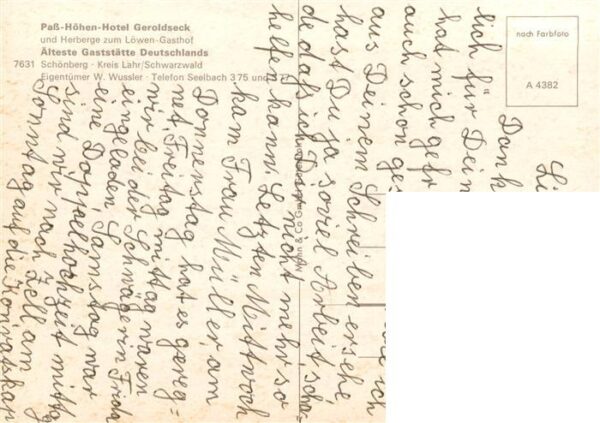 Paß-Höhen-Hotel Geroldseck
und Herberge zum Löwen-Gasthof
Älteste Gaststätte Deutschlands
7631 Schönberg · Kreis Lahr/Schwarzwald
Eigentümer W. Wussler · Telefon Seelbach 3 75 und
nach Farbfoto
A 4382
Dank
lich für Dein
hat mich gefr
auch schon ges
aus Deinem Schreiben ersehe,
hast Du ja soviel Arbeit, scha=
de daß ich Dir nicht mehr so
helfen kann. Letzten Mittwoch
kam Frau Müller, am
Donnerstag hat es gereg=
net, Freitag mittag waren
wir bei der Schwägerin Frida
eingeladen. Samstag war
eine Doppelhochzeit mittag
sind wir nach Zell am
Sonntag auf die